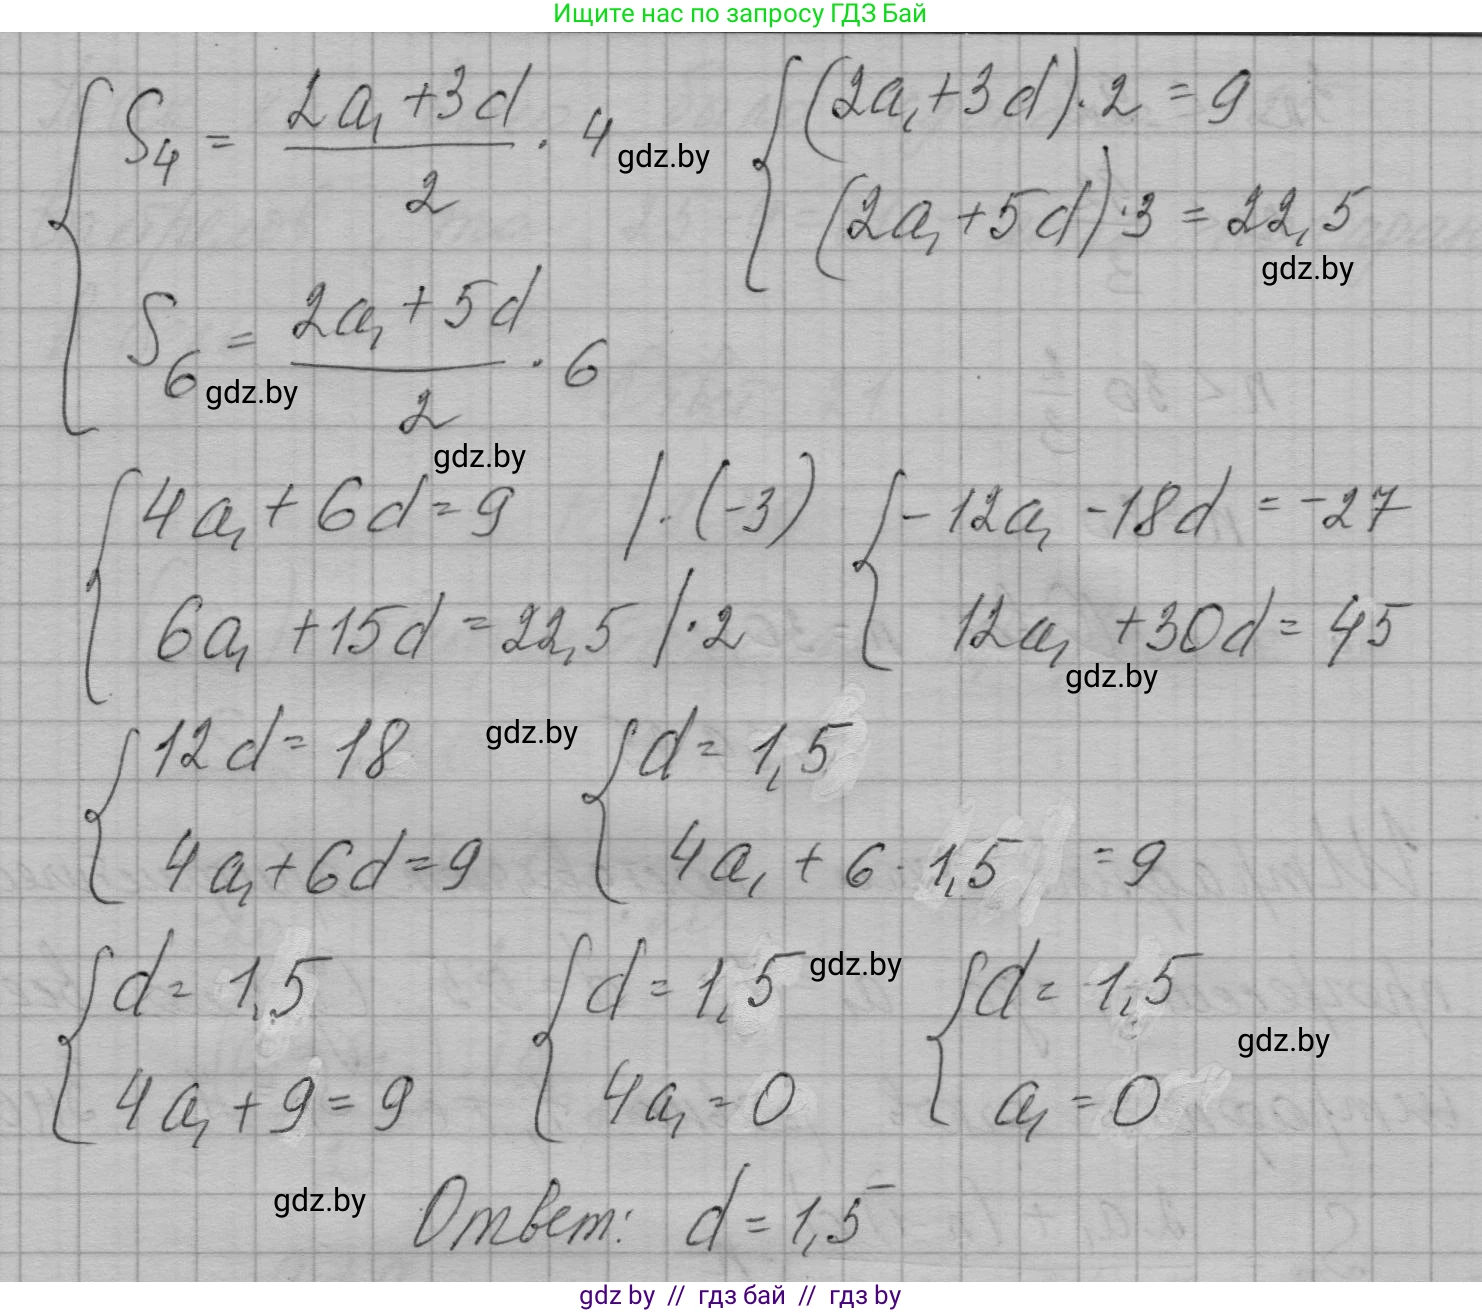 Ищите нас по запросу ГДЗ Бай
{ S₄ = (2a₁ + 3d)/2 · 4
S₆ = (2a₁ + 5d)/2 · 6
{ (2a₁ + 3d) · 2 = 9
(2a₁ + 5d) · 3 = 22,5
gdz.by
gdz.by
gdz.by
gdz.by
{ 4a₁ + 6d = 9 / · (-3)
6a₁ + 15d = 22,5 / · 2
{ -12a₁ - 18d = -27
12a₁ + 30d = 45
gdz.by
{ 12d = 18
4a₁ + 6d = 9
gdz.by
{ d = 1,5
4a₁ + 6 · 1,5 = 9
{ d = 1,5
4a₁ + 9 = 9
{ d = 1,5
4a₁ = 0
gdz.by
{ d = 1,5
a₁ = 0
gdz.by
gdz.by
Ответ: d = 1,5
gdz.by // гдз бай // гдз by